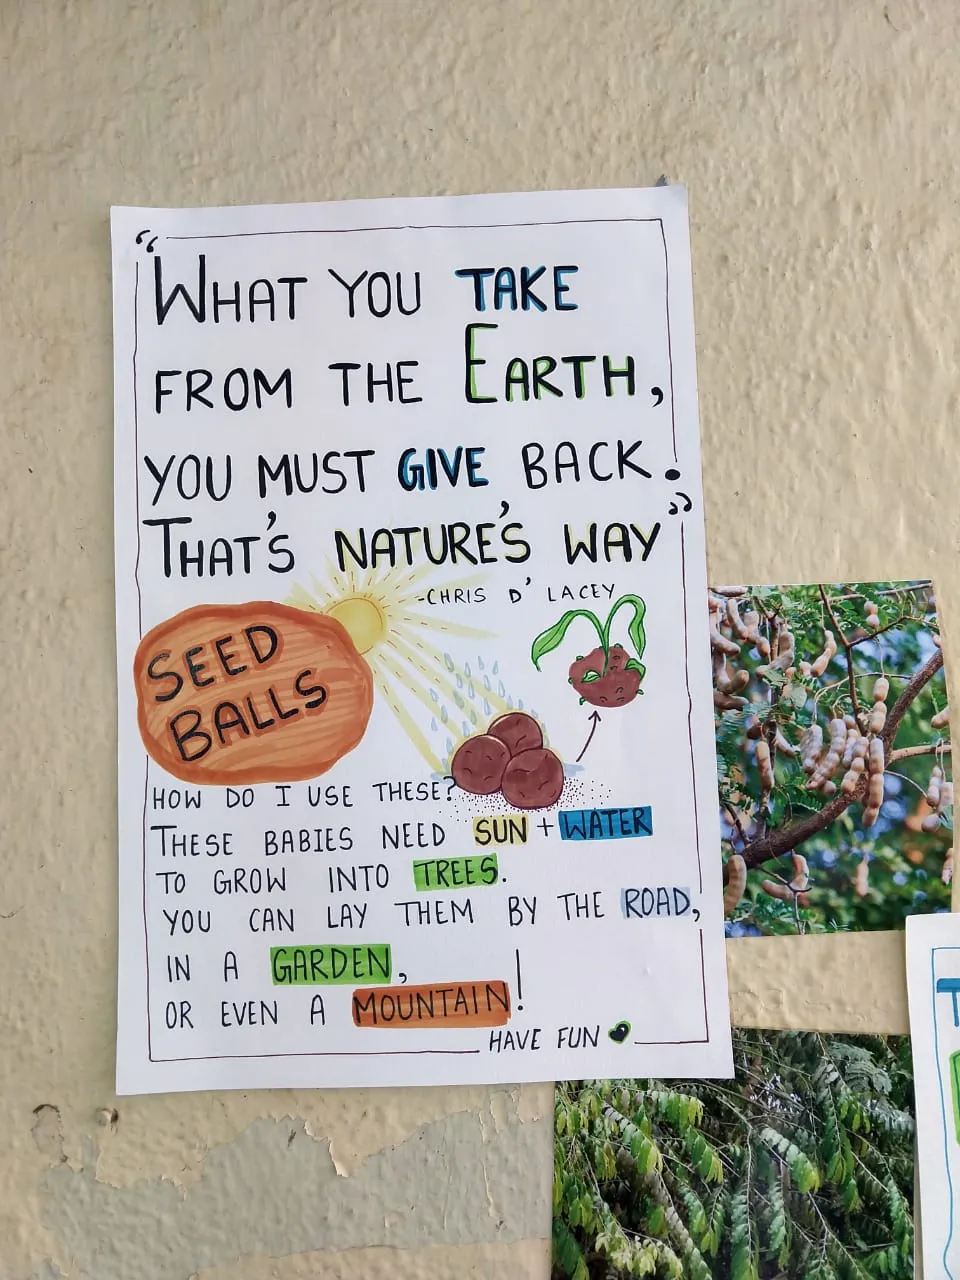 "WHAT YOU TAKE
FROM THE EARTH,
YOU MUST GIVE BACK.
THAT'S NATURE'S WAY"
-CHRIS D' LACEY
SEED
BALLS
HOW DO I USE THESE?
THESE BABIES NEED SUN + WATER
TO GROW INTO TREES.
YOU CAN LAY THEM BY THE ROAD,
IN A GARDEN,
OR EVEN A MOUNTAIN!
HAVE FUN